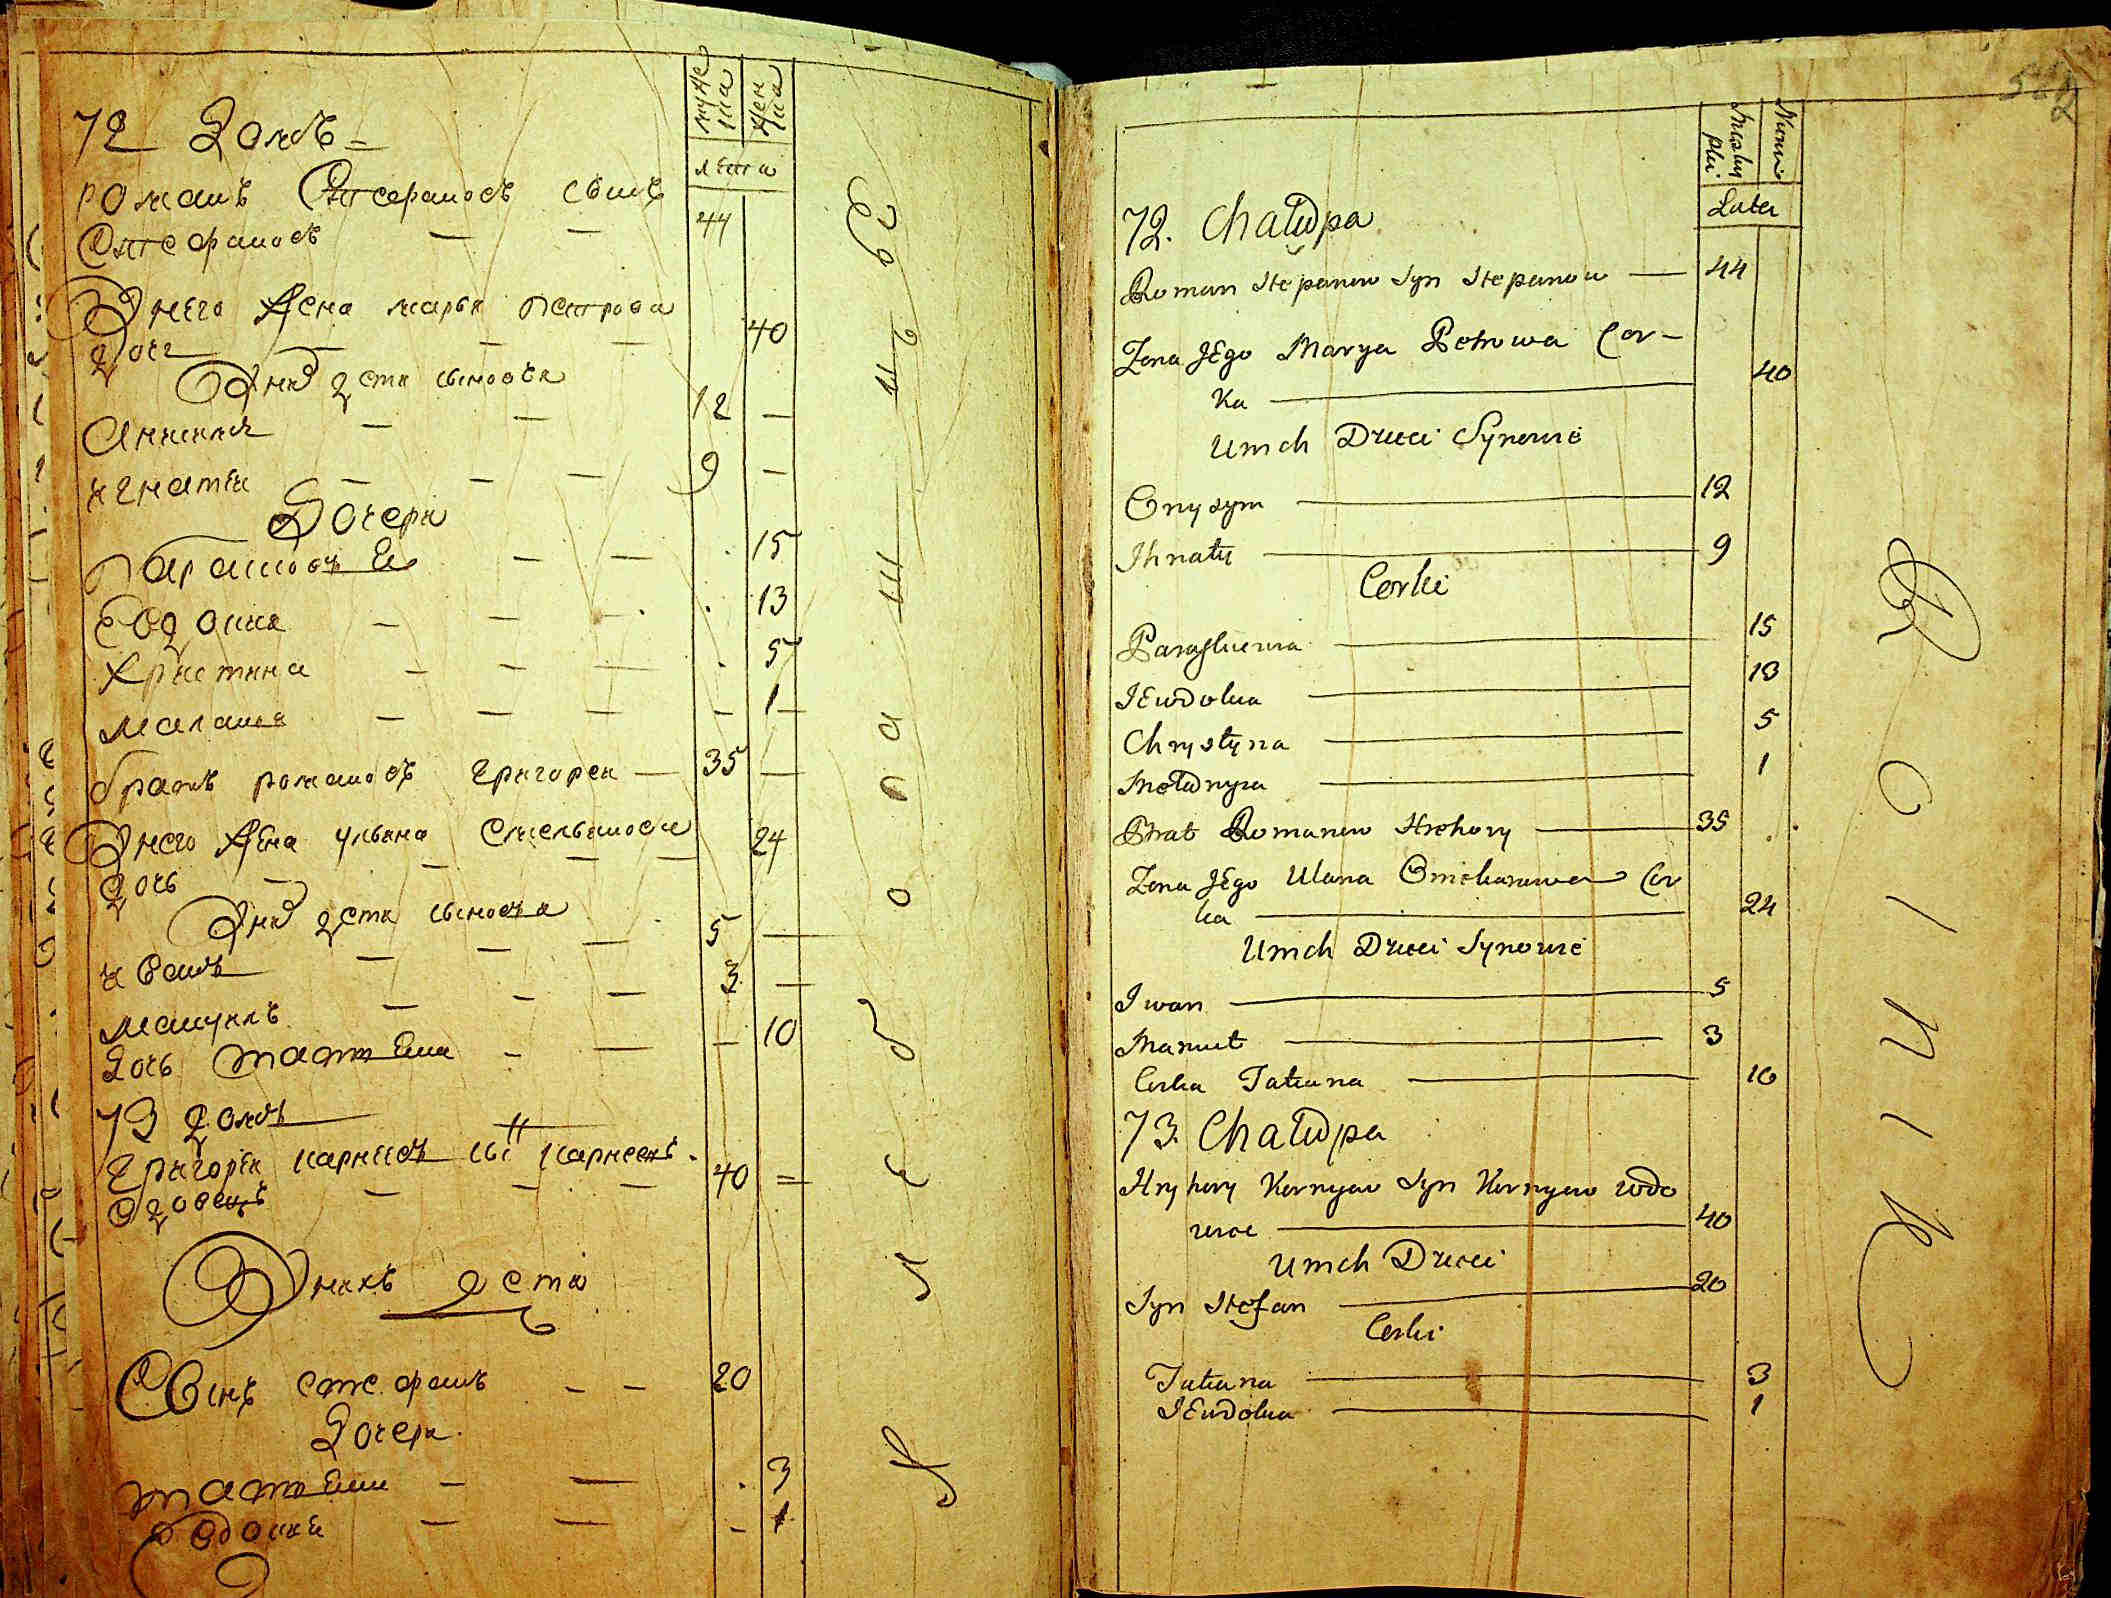 муже
ска
жен
ска
72 Домъ
лета
романъ Стефановъ сынъ
Стефановъ — — 44
Унего жена марья петрова
дочь — — — 40
Уних дети сыновья
Анисим — — 12 —
игнатеи — — — 9 —
Дочери
Парасковея — — 15
Евдокия — — — 13
Христина — — — 5
Малания — — — — 1
братъ романовъ григореи — 35 —
Унего жена ульяна
дочь — — — — 24
Уних дети сыновья
иванъ — — — 5 —
мануилъ — — — 3 —
Дочь татьяна — — — 10
73 домъ
григореи карнеевъ сын карнеевъ
вдовецъ — — — 40 =
Унихъ дети
Сынъ стефанъ — — 20
Дочери
татияна — — 3
Евдокия — — — 1
хлебопашецъ
582
Muskiey
płci
Lata
72. Chałupa
Roman Stepanow Syn Stepanow — 44
Zona JEgo Marya Petrowa Cor-
ka — 40
Unich Dzieci Synowie
Onysym — 12
Ihnaty — 9
Corki
Paraskiewia — 15
JEwdokia — 13
Chrystyna — 5
Mełanyia — 1
Brat Romanow Hrehory — 35
Zona JEgo Ulana Omelianowa Cor
ka — 24
Unich Dzieci Synowie
Iwan — 5
Manuił — 3
Corka Tatiana — 10
73. Chałupa
Hryhory Kornyew Syn Kornyew wdo
wiec — 40
Unich Dzieci
Syn Stefan — 20
Corki
Tatiana — 3
JEwdokia — 1
Rolnik